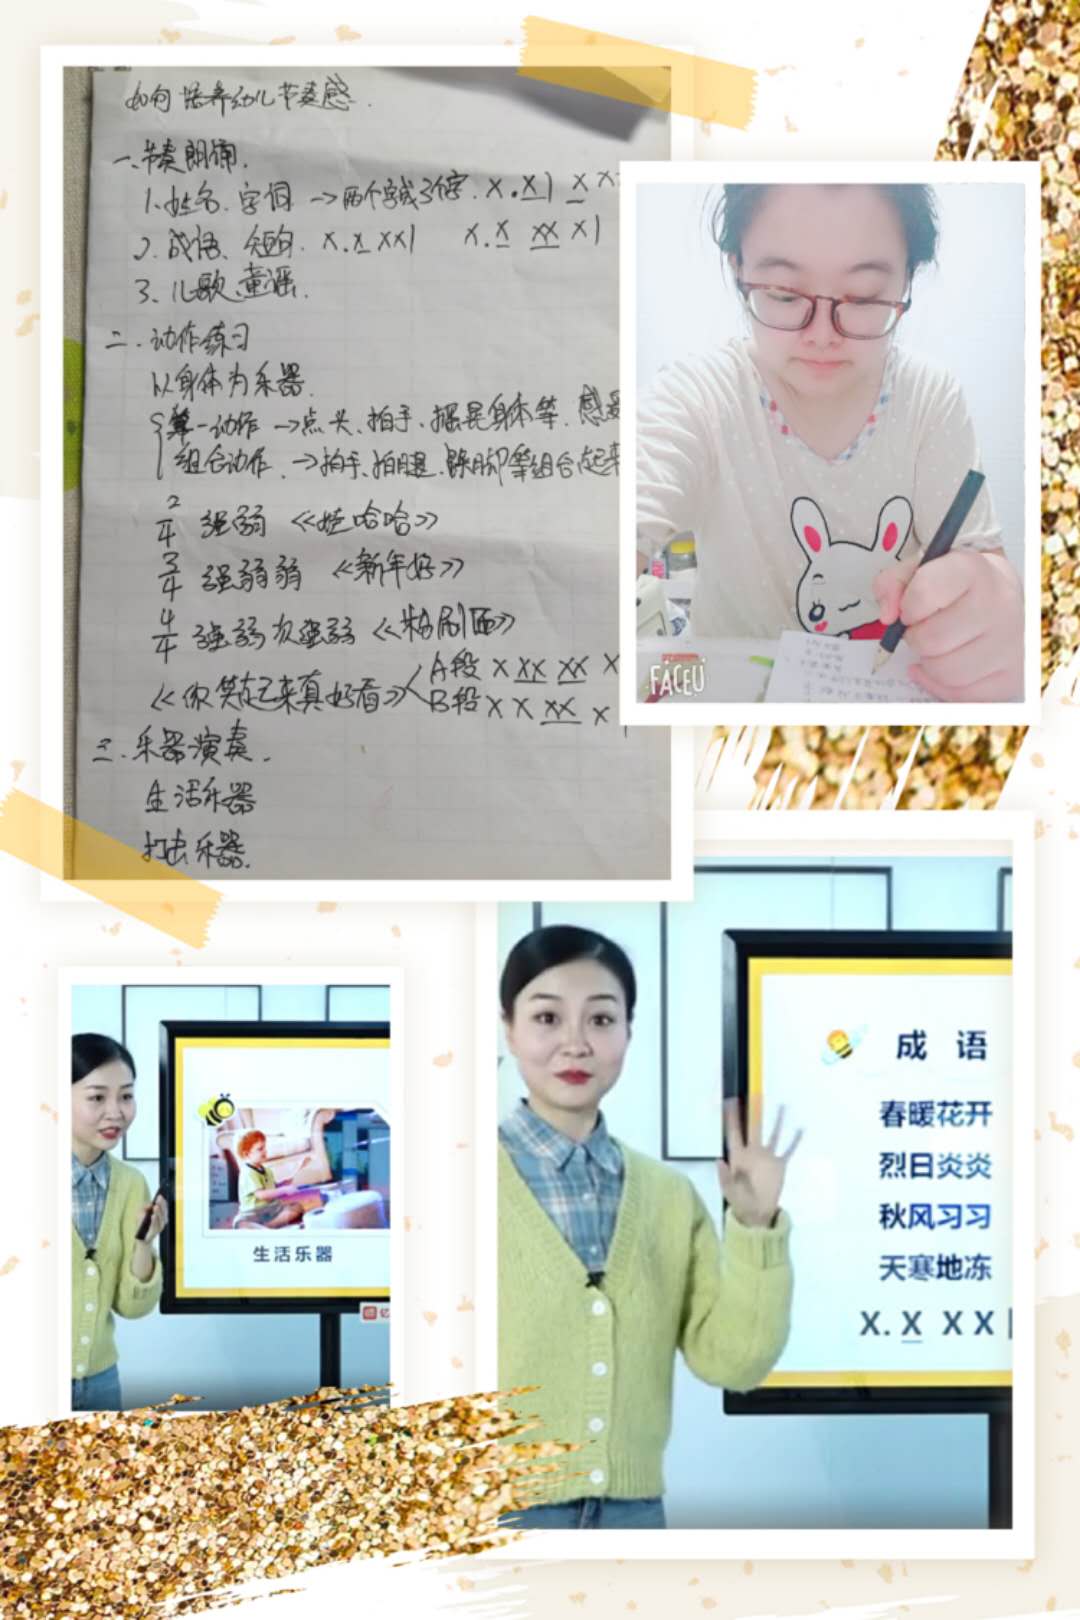 如何培养幼儿节奏感.
一、节奏朗诵.
1、姓名、字词 →两个字或3个字. X.X| X X
2、成语、短句. X.X XX| X.X XX X|
3、儿歌、童谣.
二、动作练习
以身体为乐器.
单一动作→点头、拍手、摇晃身体等.感受
组合动作.→拍手、拍腿、跺脚等组合起来
2/4 强弱《娃哈哈》
3/4 强弱弱《新年好》
4/4 强弱次强弱《粉刷匠》
《你笑起来真好看》
A段 X XX XX X
B段 X X XX X
三、乐器演奏.
生活乐器
打击乐器.
FACEU
生活乐器
亿
成语
春暖花开
烈日炎炎
秋风习习
天寒地冻
X. X X X |